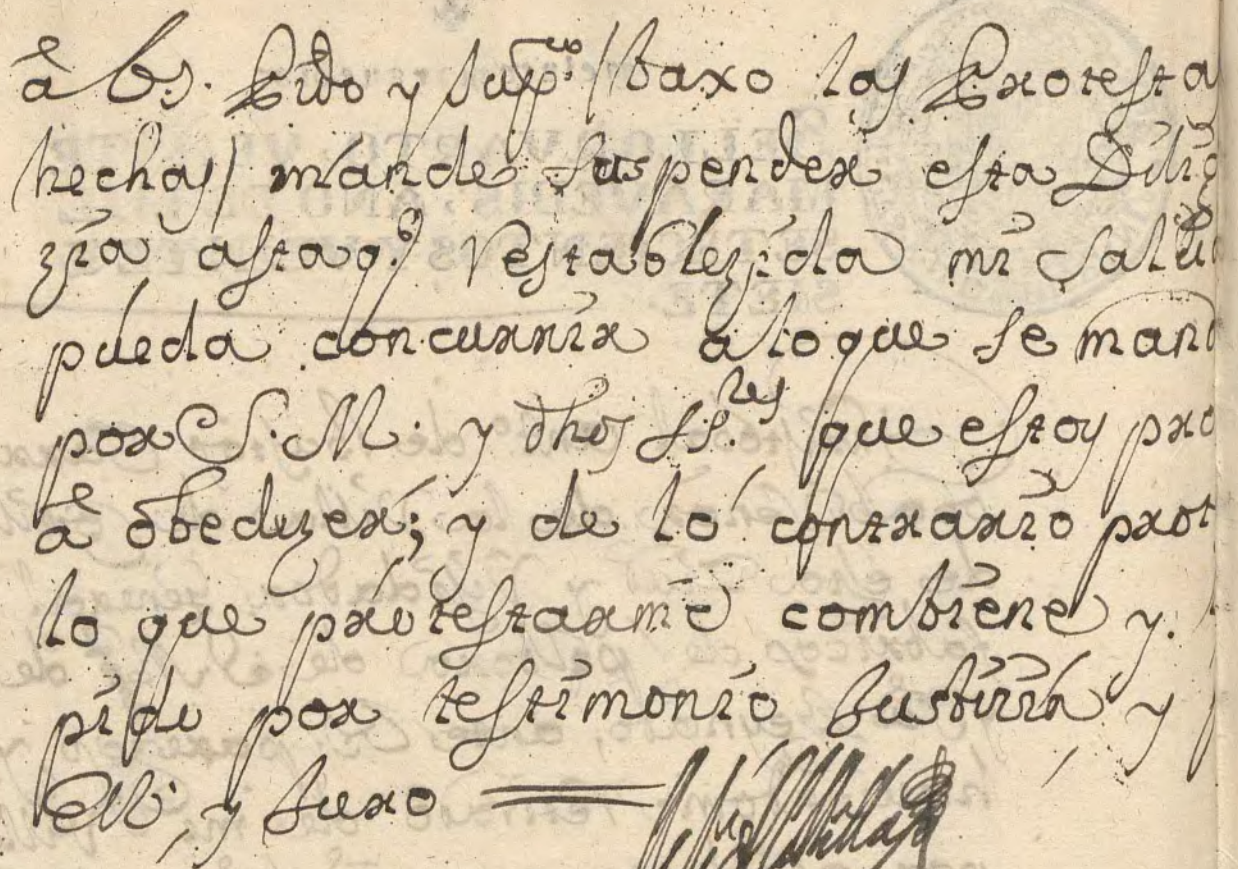 â Vs. Pido y supco / baxo las Protesta
hechas / mande suspender esta Dilig
zia asta q.e restablezida mi Salud
pueda concurrir a lo que se mand
por S. M. y dhos SS.res que estoy pro
â obedezer; y de lo contrario prot
lo que protestarme combiene y.
pido por testimonio Justizia y
y Juro